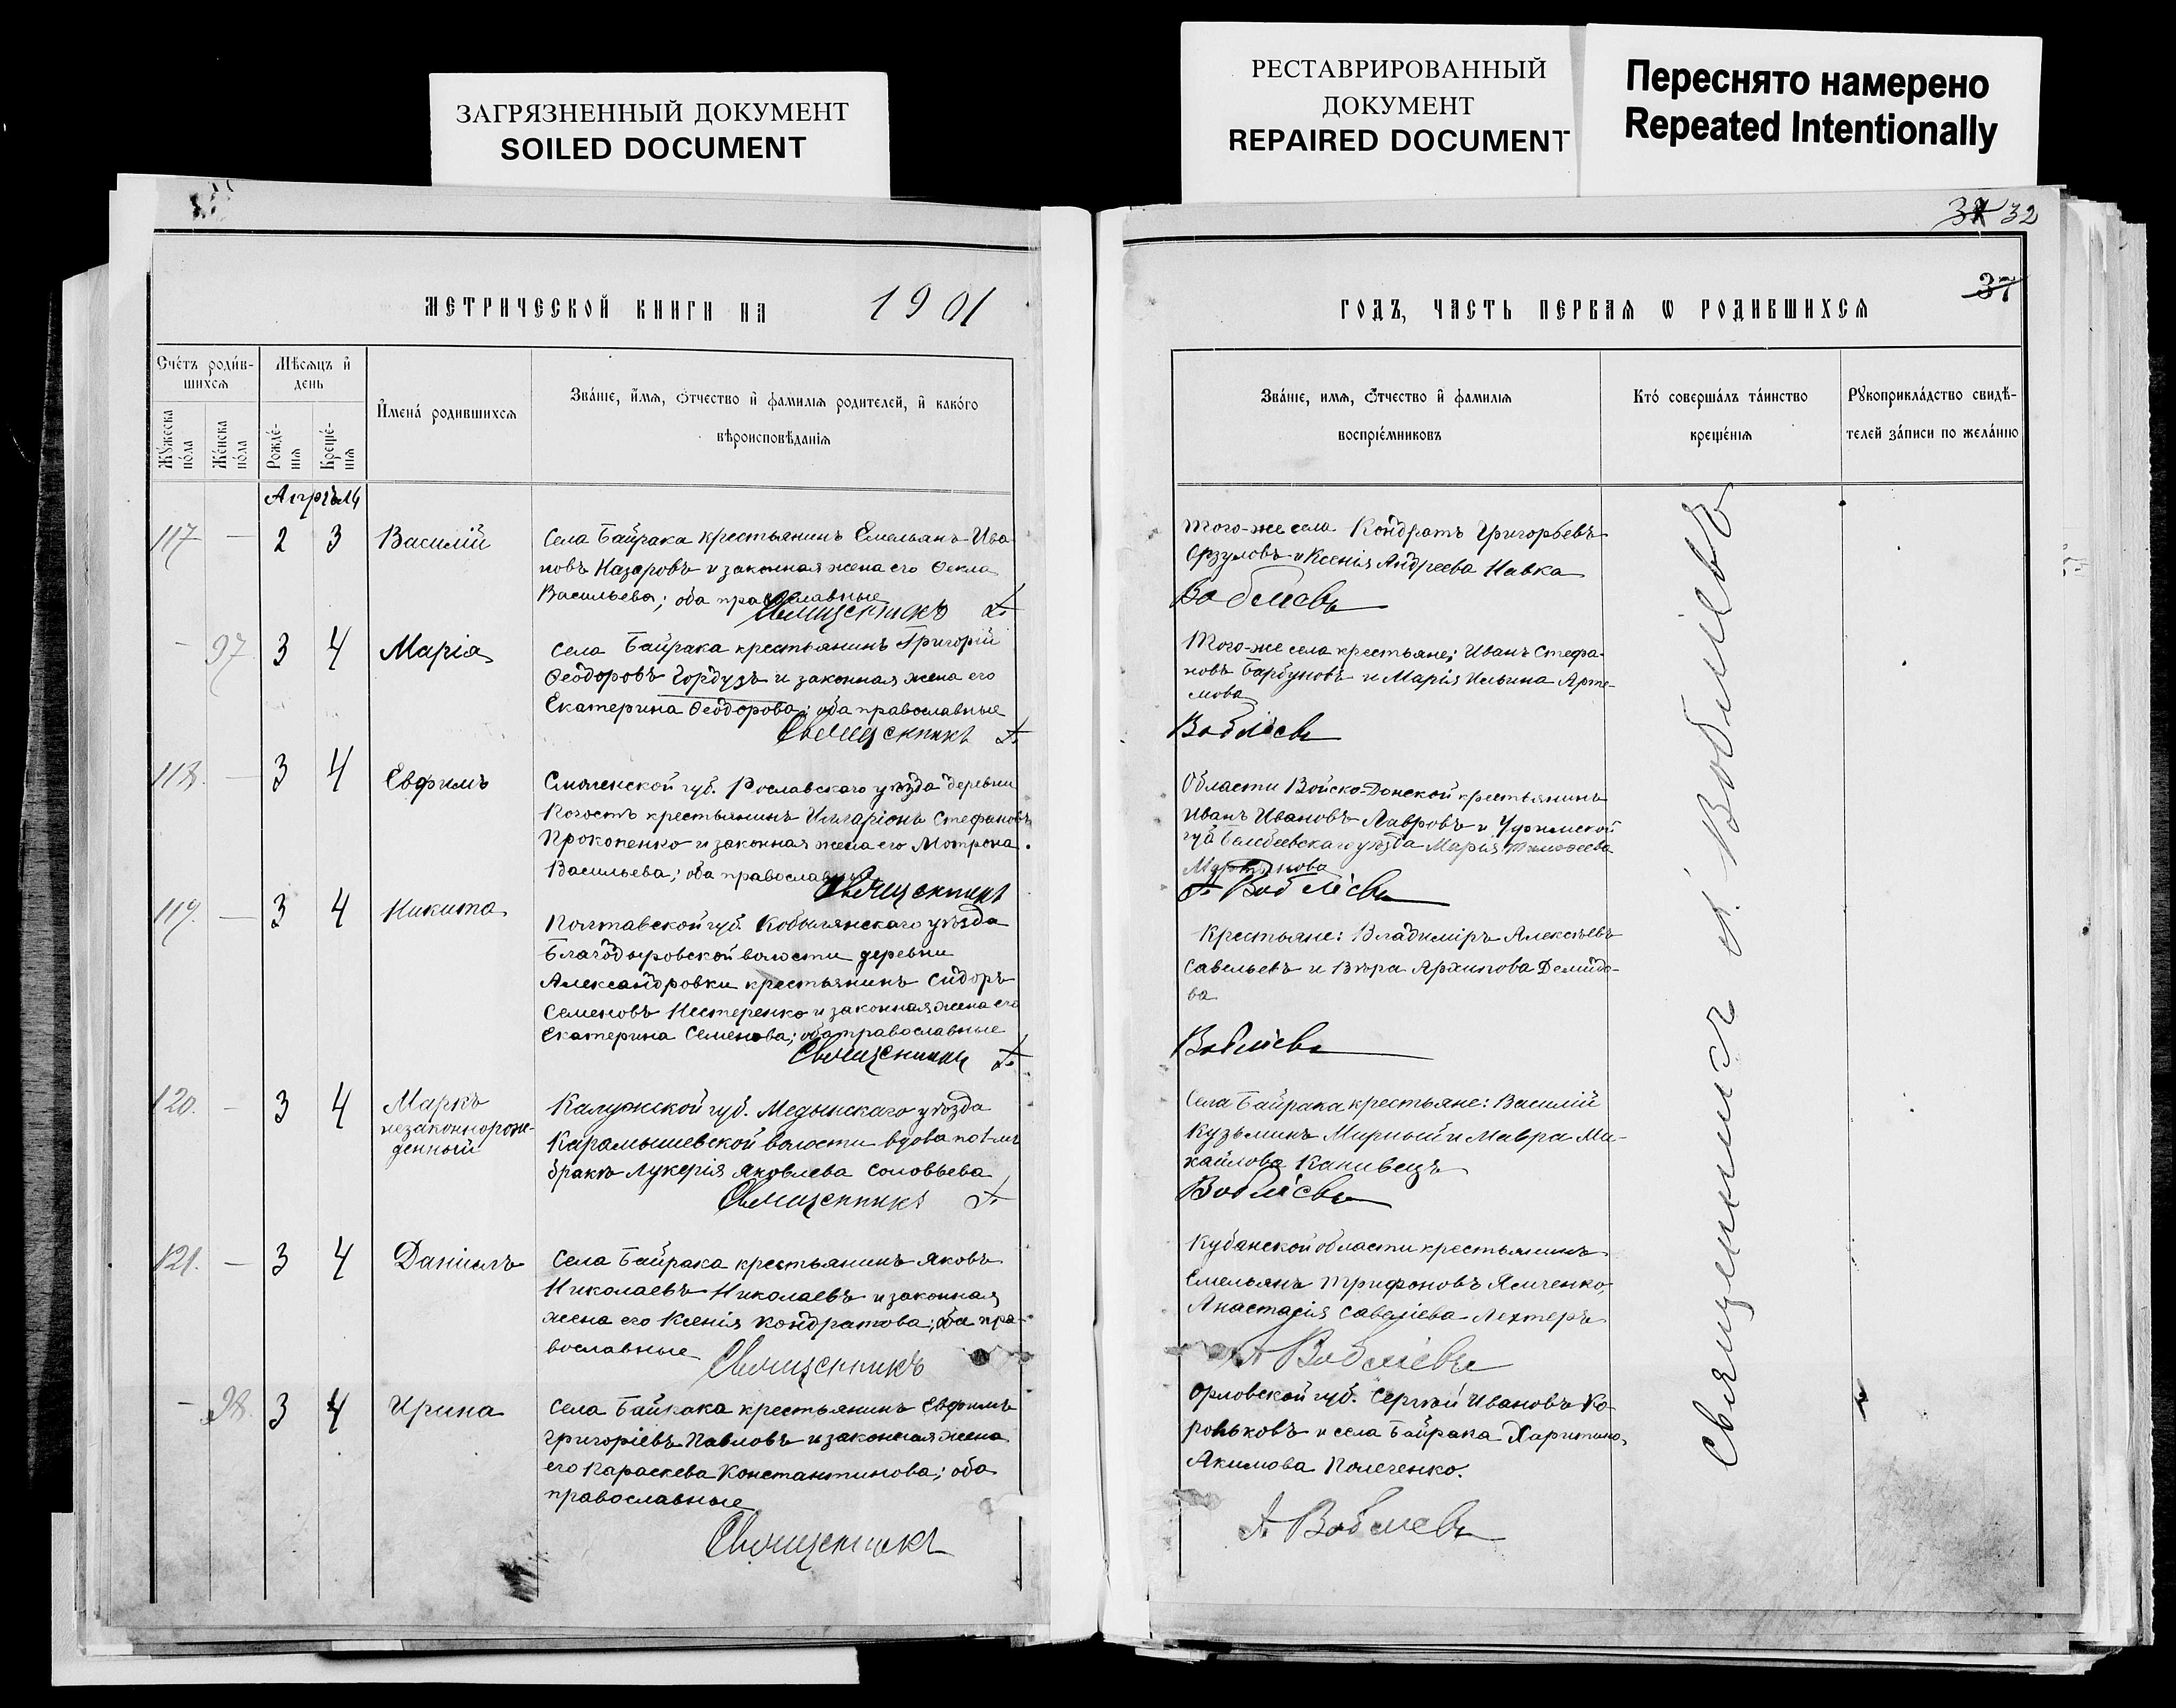 ЗАГРЯЗНЕННЫЙ ДОКУМЕНТ
SOILED DOCUMENT
РЕСТАВРИРОВАННЫЙ
ДОКУМЕНТ
REPAIRED DOCUMENT
Переснято намерено
Repeated Intentionally
МЕТРИЧЕСКОЙ КНИГИ НА 1901
Счетъ родив-
шихся
Мѣсяцъ и
день
Имена родившихся
Званіе, имя, отчество и фамилія родителей, и какого
вѣроисповѣданія
Мужеска
пола
Женска
пола
Рожде-
нія
Креще-
нія
Апрѣль
117 — 2 3 Василій
Села Байрака крестьянинъ Емельянъ Ива
новъ Назаровъ и законная жена его Ѳекла
Васильева; оба православные
Священникъ А.
— 97 3 4 Марія
Села Байрака крестьянинъ Григорій
Ѳеодоровъ Гордузъ и законная жена его
Екатерина Ѳеодорова; оба православные
Священникъ А.
118. — 3 4 Евфимъ
Смоленской губ. Рославскаго уѣзда деревни
Погостъ крестьянинъ Илларіонъ Стефановъ
Прокопенко и законная жена его Мотрона
Васильева; оба православные
Священникъ
119. — 3 4 Никита
Полтавской губ. Кобылянскаго уѣзда
волости деревни
Александровки крестьянинъ Сидоръ
Семеновъ Нестеренко и законная жена его
Екатерина Семенова; оба православные
Священникъ А.
120. — 3 4 Маркъ
незаконнорож-
денный
Калужской губ. Медынскаго уѣзда
Карамышевской волости вдова по 1-мъ
бракѣ Лукерія Яковлева Соловьева
Священникъ А.
121. — 3 4 Даніилъ
Села Байрака крестьянинъ Яковъ
Николаевъ Николаевъ и законная
жена его Ксенія Кондратова; оба пра-
вославные
Священникъ
— 98. 3 4 Ирина
Села Байрака крестьянинъ Евфимъ
Григоріевъ Павловъ и законная жена
его Параскева Константинова; оба
православные
Священникъ
32
37
ГОДЪ, ЧАСТЬ ПЕРВАЯ Ѡ РОДИВШИХСЯ
Званіе, имя, отчество и фамилія
воспріемниковъ
Кто совершалъ таинство
крещенія
Рукоприкладство свидѣ-
телей записи по желанію
того-же села Кондратъ Григорьевъ
Арзуловъ и Ксенія Андреева Навка
Воблиевъ
Того-же села крестьяне; Иванъ Стефа-
новъ Барбуновъ и Марія Ильина Арте-
мова
Воблиевъ
Области Войско-Донской крестьянинъ
Иванъ Ивановъ Лавровъ и Уфимской
губ Белебеевскаго уѣзда Марія Тимоѳеева
Мартынова
А. Воблиевъ
Крестьяне: Владиміръ Алексѣевъ
Савельевъ и Вѣра Архипова Демидо-
ва
Воблиевъ
Села Байрака крестьяне: Василій
Кузьминъ Мирный и Мавра Ми-
хайлова Канивецъ
Воблиевъ
Кубанской области крестьянинъ
Емельянъ Трифоновъ
Анастасія Савеліева Лехтеръ
А Воблиевъ
Орловской губ. Сергѣй Ивановъ Ко-
роньковъ и села Байрака Харитина
Акимова Полеченко.
А. Воблиевъ
Священникъ А. Воблиевъ